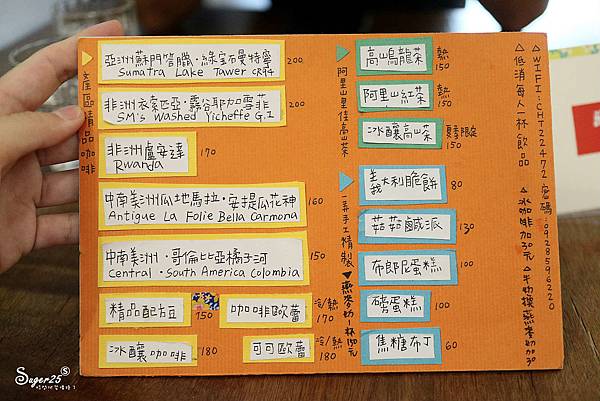 產區精品咖啡
亞洲蘇門答臘·綠寶石曼特寧
Sumatra Lake Tawer CR94
200
非洲衣索匹亞·霧谷耶加雪菲
SM's Washed Yicheffe G.1
200
非洲盧安達
Rwanda
170
中南美洲瓜地馬拉·安提瓜花神
Antigue La Folie Bella Carmona
160
中南美洲·哥倫比亞橘子河
Central·South America Colombia
150
精品配方豆
150
咖啡歐蕾
冷/熱
170
冰釀咖啡
180
可可歐蕾
冷/熱
180
阿里山里佳高山茶
高山烏龍茶
熱
150
阿里山紅茶
熱
150
冰釀高山茶
夏季限定
150
一弄手工精製
義大利脆餅
80
菇菇鹹派
130
布朗尼蛋糕
100
磅蛋糕
100
焦糖布丁
60
燕麥奶一杯150元
WIFI:CHT22472 密碼:0928596220
低消每人一杯飲品
冰咖啡加30元
牛奶換燕麥奶加30
Suger25